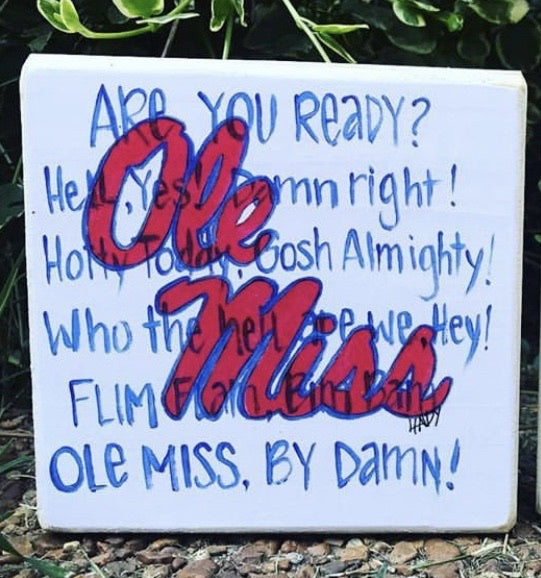 ARE YOU READY?
Hell, Yes! Damn right!
Hotty Toddy, Gosh Almighty!
Who the hell are we, Hey!
FLIM Flam, Bim Bam
OLE MISS, BY DAMN!
Ole
Miss